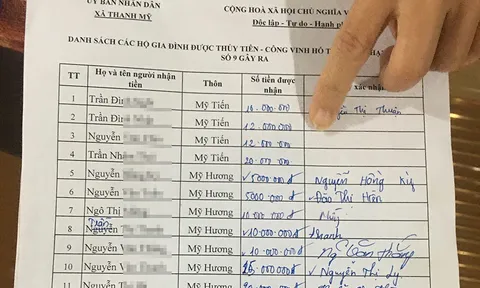 ỦY BAN NHÂN DÂN
XÃ THANH MỸ
CỘNG HOÀ XÃ HỘI CHỦ NGHĨA V
Độc lập - Tự do - Hạnh ph
DANH SÁCH CÁC HỘ GIA ĐÌNH ĐƯỢC THỦY TIÊN - CÔNG VINH HỖ T
SỐ 9 GÂY RA
TT Họ và tên người nhận tiền Thôn Số tiền được nhận xác nhận
1 Trần Đìn Mỹ Tiến 10.000.000 Thị Thuận
2 Trần Đình Mỹ Tiến 12.000.000
3 Nguyễn Mỹ Tiến 12.000.000
4 Trần Nh Mỹ Tiến 20.000.000
5 Nguyễn Mỹ Hương 5000.000đ Nguyễn Hồng Kỳ
6 Nguyễn Mỹ Hương 5000.000đ Đào Thị Hiên
7 Ngô Thị Mỹ Hương 10.000.000đ
8 Trần Nguyễn Mỹ Hương 10.000.000đ Thanh
9 Nguyễn V Mỹ Hương 10.000.000đ Ng Văn Thắng
10 Nguyễn Mỹ Hương 000.000đ Nguyễn Thị Ly
11 Nguyễn T Mỹ Hương